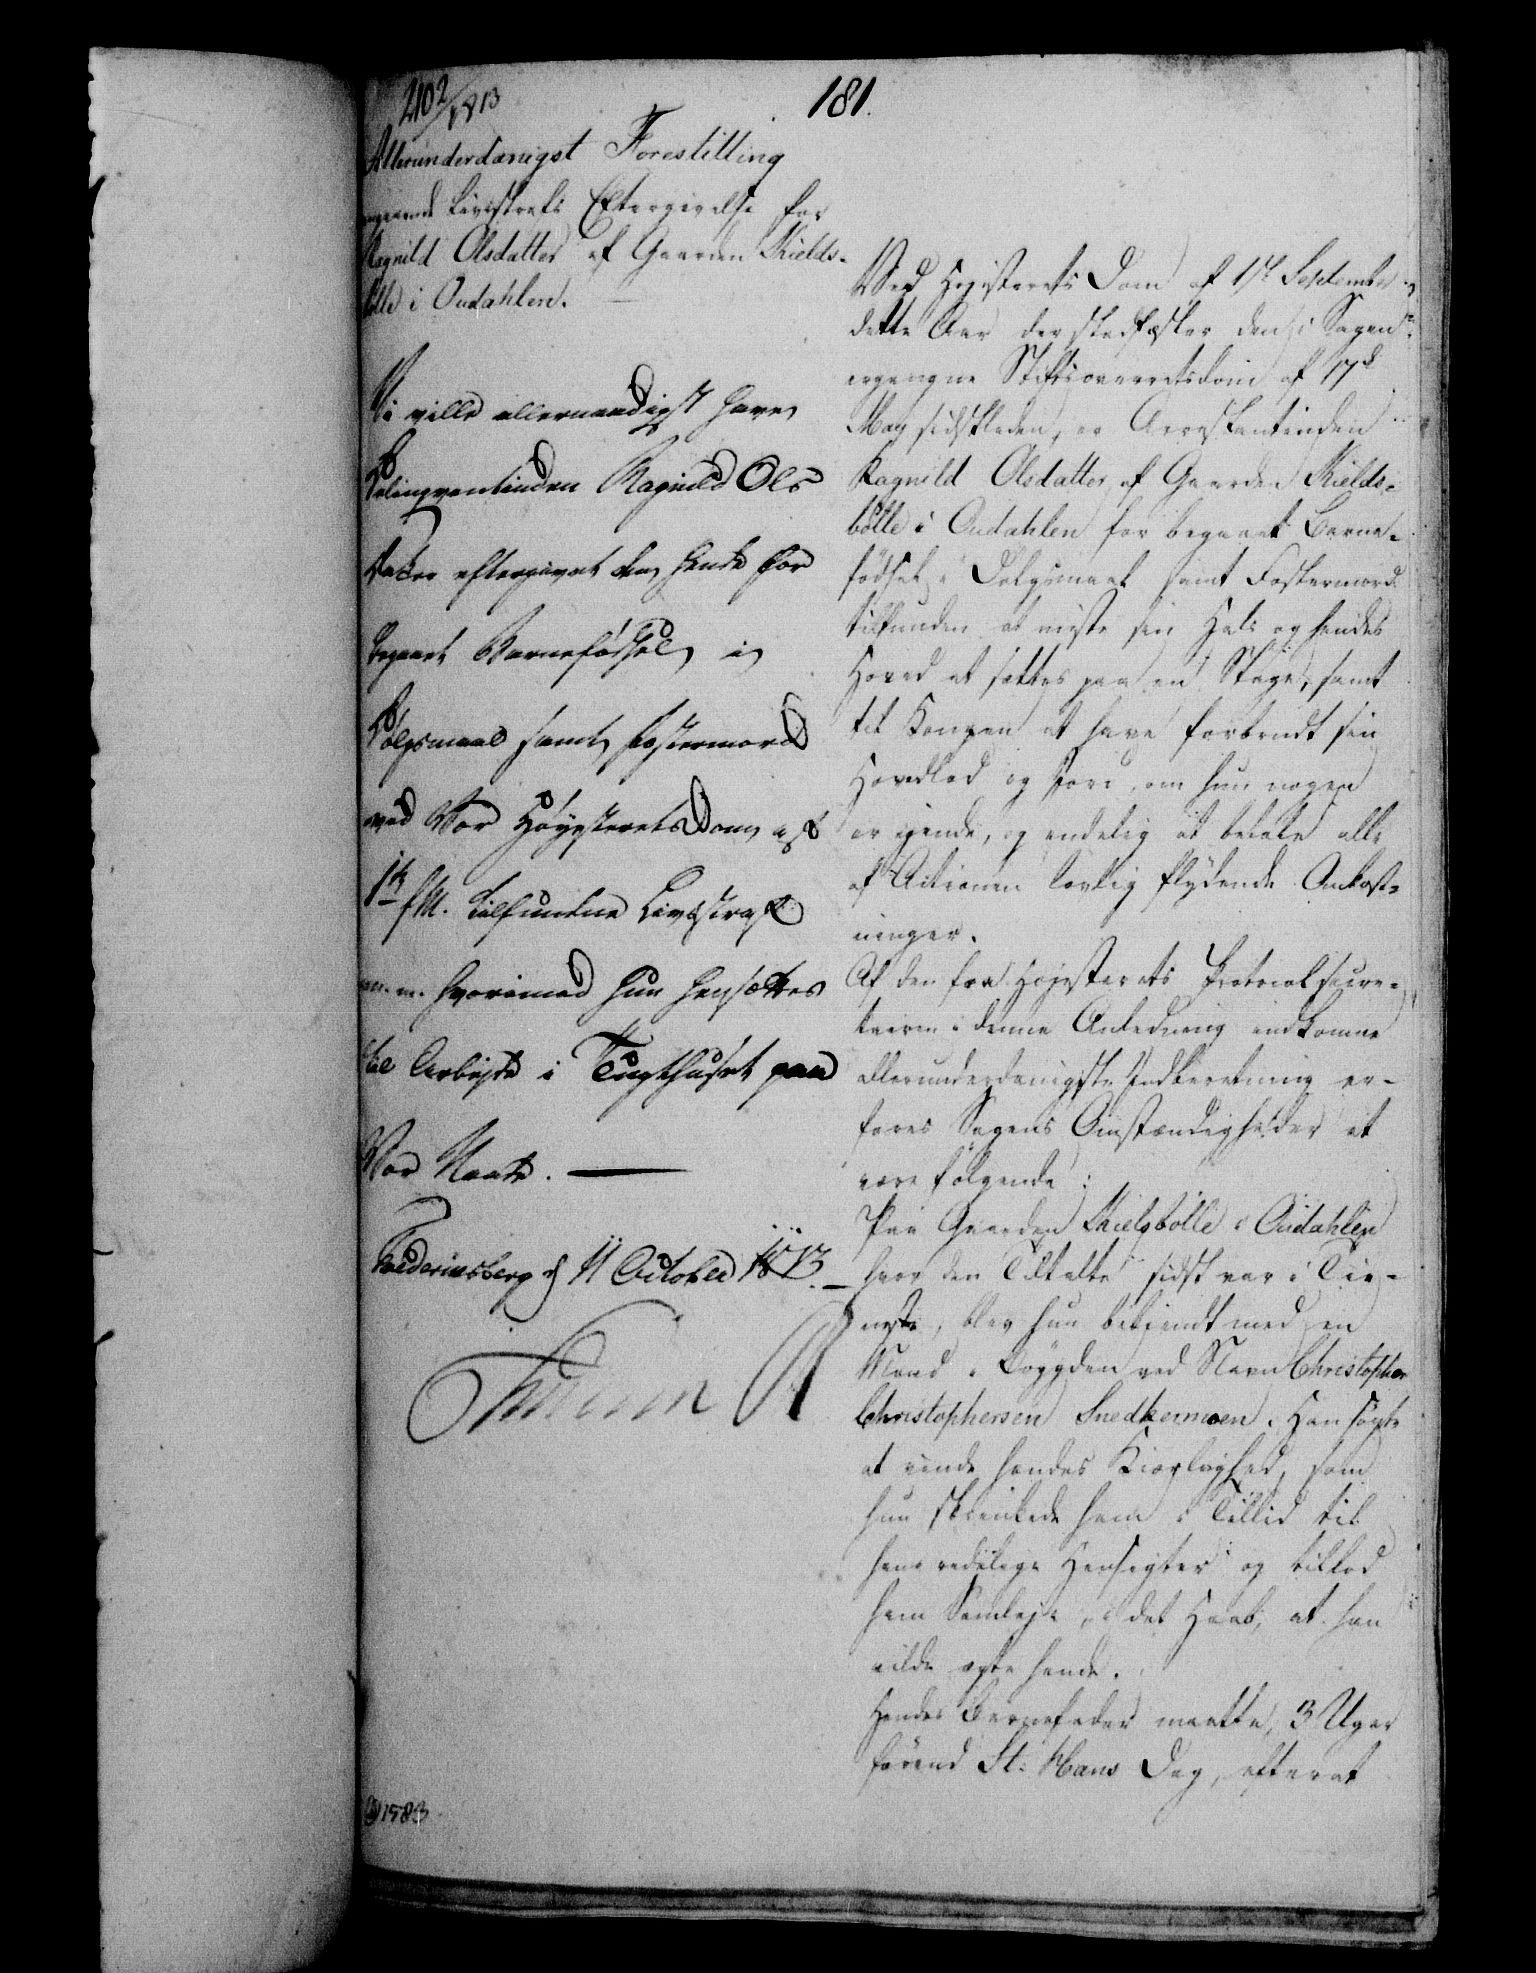 2102/1813
181.
Allerunderdanigst Forestilling
Livsstrafs Eftergivelse for
Ragnild Olsdatter af Gaarden Kields-
bölle i Oudahlen.
Vi ville allernaadigst have
Delinqventinden Ragnild Ols
datter eftergivet den hende for
begaaet Barnefødsel i
Dølgsmaal samt Fostermord
ved Vor Høyesterets Dom af
f. M. tilfundne Livsstraf
m. m. hvorimod hun hensættes
til Arbejde i Tugthuset paa
Vor Naade.
Frederiksberg d 11 October 1813.
Frederik R
Ved Højesterets Dom af September
dette Aar der stadfæster den i Sagen
ergangne Stiftsoverretsdom af 17de
May sidstleden, er Arrestantinden
Ragnild Olsdatter af Gaarden Kields-
bölle i Oudahlen for begaaet Barne-
fødsel i Dølgsmaal samt Fostermord
tilfunden at miste sin Hals og hendes
Hoved at sættes paa en Stage, samt
til Kongen at have forbrudt sin
Hovedlod og Jord, om hun nogen
er ejende, og endelig at betale alle
af Actionen lovlig flydende Omkost-
ninger.
Af den fra Højesterets Protocolsecre-
tairen i denne Anledning indkomne
allerunderdanigste Indberetning er-
fares Sagens Omstændigheder at
være følgende:
Paa Gaarden Kielsbölle i Oudahlen
hvor den Tiltalte sidst var i Tie-
neste, blev hun bekiendt med en
Mand i Bøygden ved Navn Christopher
Christophersen Snedkermoen. Han søgte
at vinde hendes Kierlighed, som
hun skienkede ham i Tillid til
hans redelige Hensigter og tillod
ham Samleje, i det Haab, at han
vilde ægte hende.
Hendes Barnefader maatte, 3 Uger
førend St. Hans Dag, efterat
1583